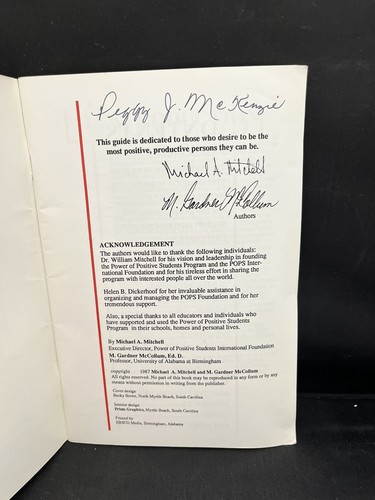 Peggy J. McKenzie
This guide is dedicated to those who desire to be the
most positive, productive persons they can be.
Michael A. Mitchell
M. Gardner McCollum
Authors
ACKNOWLEDGEMENT
The authors would like to thank the following individuals:
Dr. William Mitchell for his vision and leadership in founding
the Power of Positive Students Program and the POPS Inter-
national Foundation and for his tireless effort in sharing the
program with interested people all over the world.
Helen B. Dickerhoof for her invaluable assistance in
organizing and managing the POPS Foundation and for her
tremendous support.
Also, a special thanks to all educators and individuals who
have supported and used the Power of Positive Students
Program in their schools, homes and personal lives.
By Michael A. Mitchell
Executive Director, Power of Positive Students International Foundation
M. Gardner McCollum, Ed. D.
Professor, University of Alabama at Birmingham
copyright 1987 Michael A. Mitchell and M. Gardner McCollum
All rights reserved. No part of this book may be reproduced in any form or by any
means without permission in writing from the publisher.
Cover design:
Becky Stowe, North Myrtle Beach, South Carolina
Interior design:
Prism Graphics, Myrtle Beach, South Carolina
Printed by
Media, Birmingham, Alabama